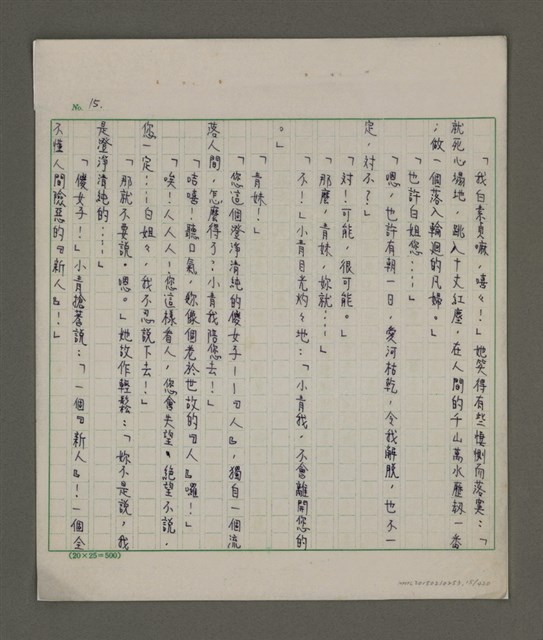 No. 15.
「我白素貞嘛，嘻々！」她笑得有些悽惻而落寞：「
就死心塌地，跳入十丈紅塵，在人間的千山萬水歷劫一番
；做一個落入輪迴的凡婦。」
「也許白姐您…」
「嗯，也許有朝一日，愛河枯乾，令我解脫，也不一
定，對不？」
「對！可能，很可能。」
「那麼，青妹，妳就…」
「不！」小青目光灼々地：「小青我，不會離開您的
。」
「青妹！」
「您這個澄淨清純的傻女子——『人』，獨自一個流
落人間，怎麼得了？小青我陪您去！」
「咭嘻！聽口氣，妳像個老於世故的『人』囉！」
「唉！人人人！您這樣看人，您會失望、絕望不說，
您一定…白姐々，我不忍說下去！」
「那就不要說。嗯。」她故作輕鬆：「妳不是說，我
是澄淨清純的…」
「傻女子！」小青搶著說：「一個『新人』！一個全
不懂人間險惡的『新人』！」
(20×25=500)